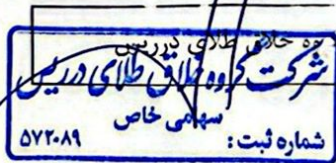 گروه خلاق طلای دُرریس
شرکت گروه خلاق طلای دُرریس
سهامی خاص
شماره ثبت : ۵۷۲۰۸۹